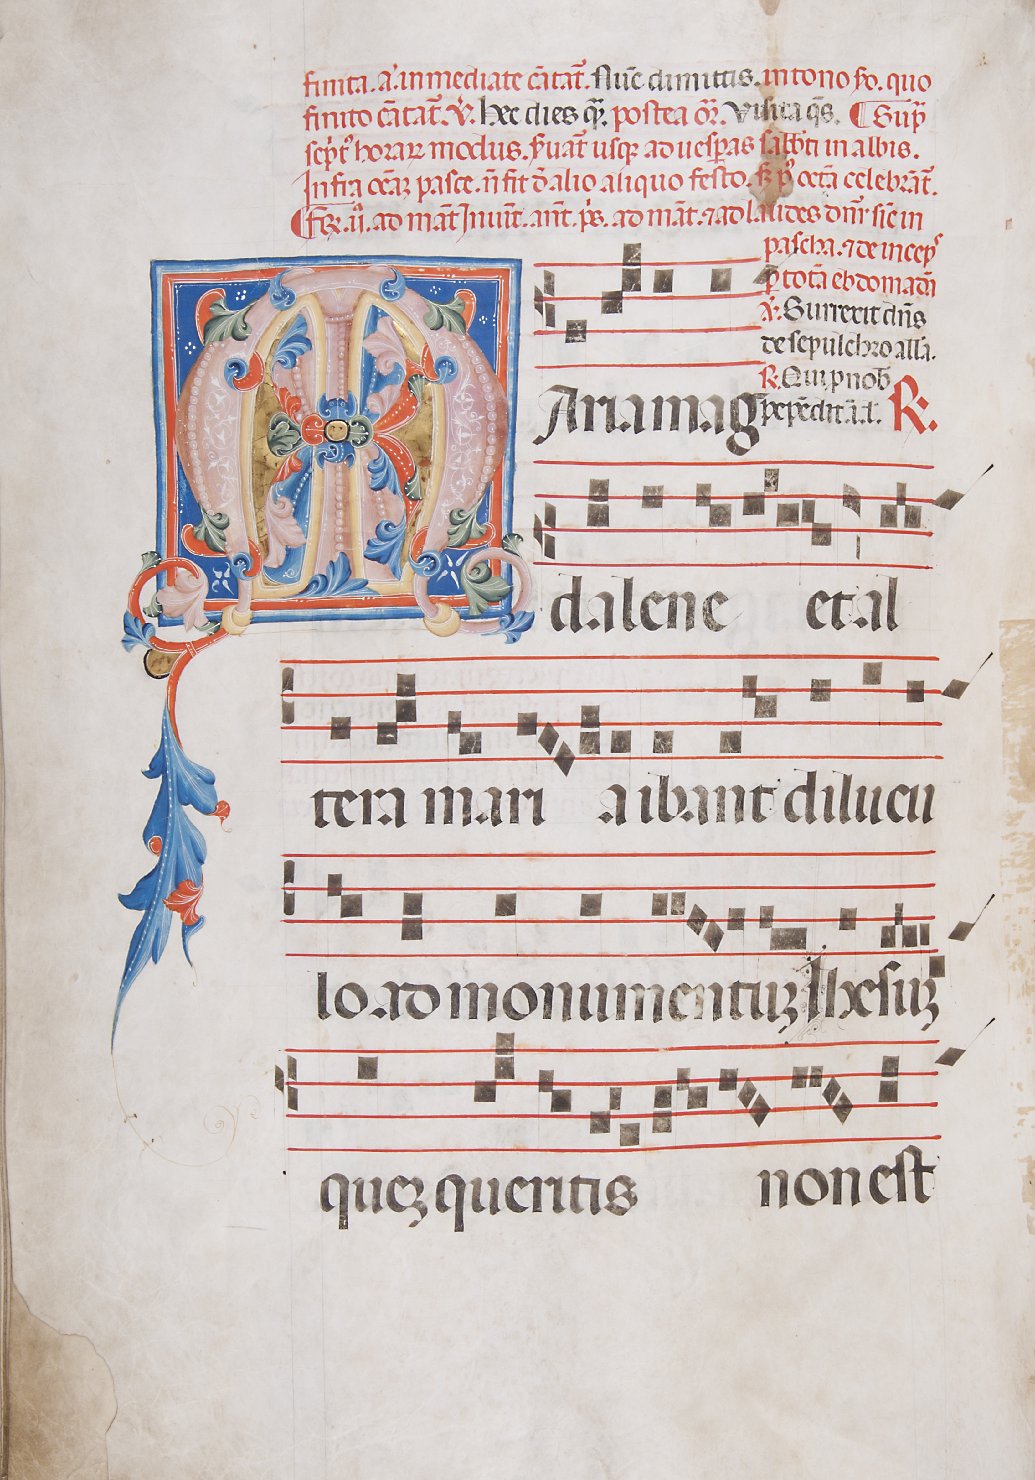 finita. a͛. inmediate cātat᷑. Nūc dimittis. in tono
finito cātat᷑. ℣. hec dies q̄. postea or̄. Visita q̄s. ¶ Sup̄
horaꝝ modus. usqꝫ ad uesꝑas sabb̄ti in albis.
Infra pasce. n̄ fit d̄ alio aliquo festo. celebrāt᷑.
¶ ad mat̄ Inuit̄. ant̄. p̄s. ad mat̄. ⁊ ad laudes dn̄r sic̄ in
pascha. ⁊ de incep̄s
ꝑ totā ebdomadā
℣. Surrexit dn̄s
de sepulchro all'a.
℟. Qui ꝓ nob̄
Maria mag ℟.
dalene et al
tera mari a ibant dilucu
lo ad monumentuꝫ Ihesuꝫ
queꝫ queritis non est